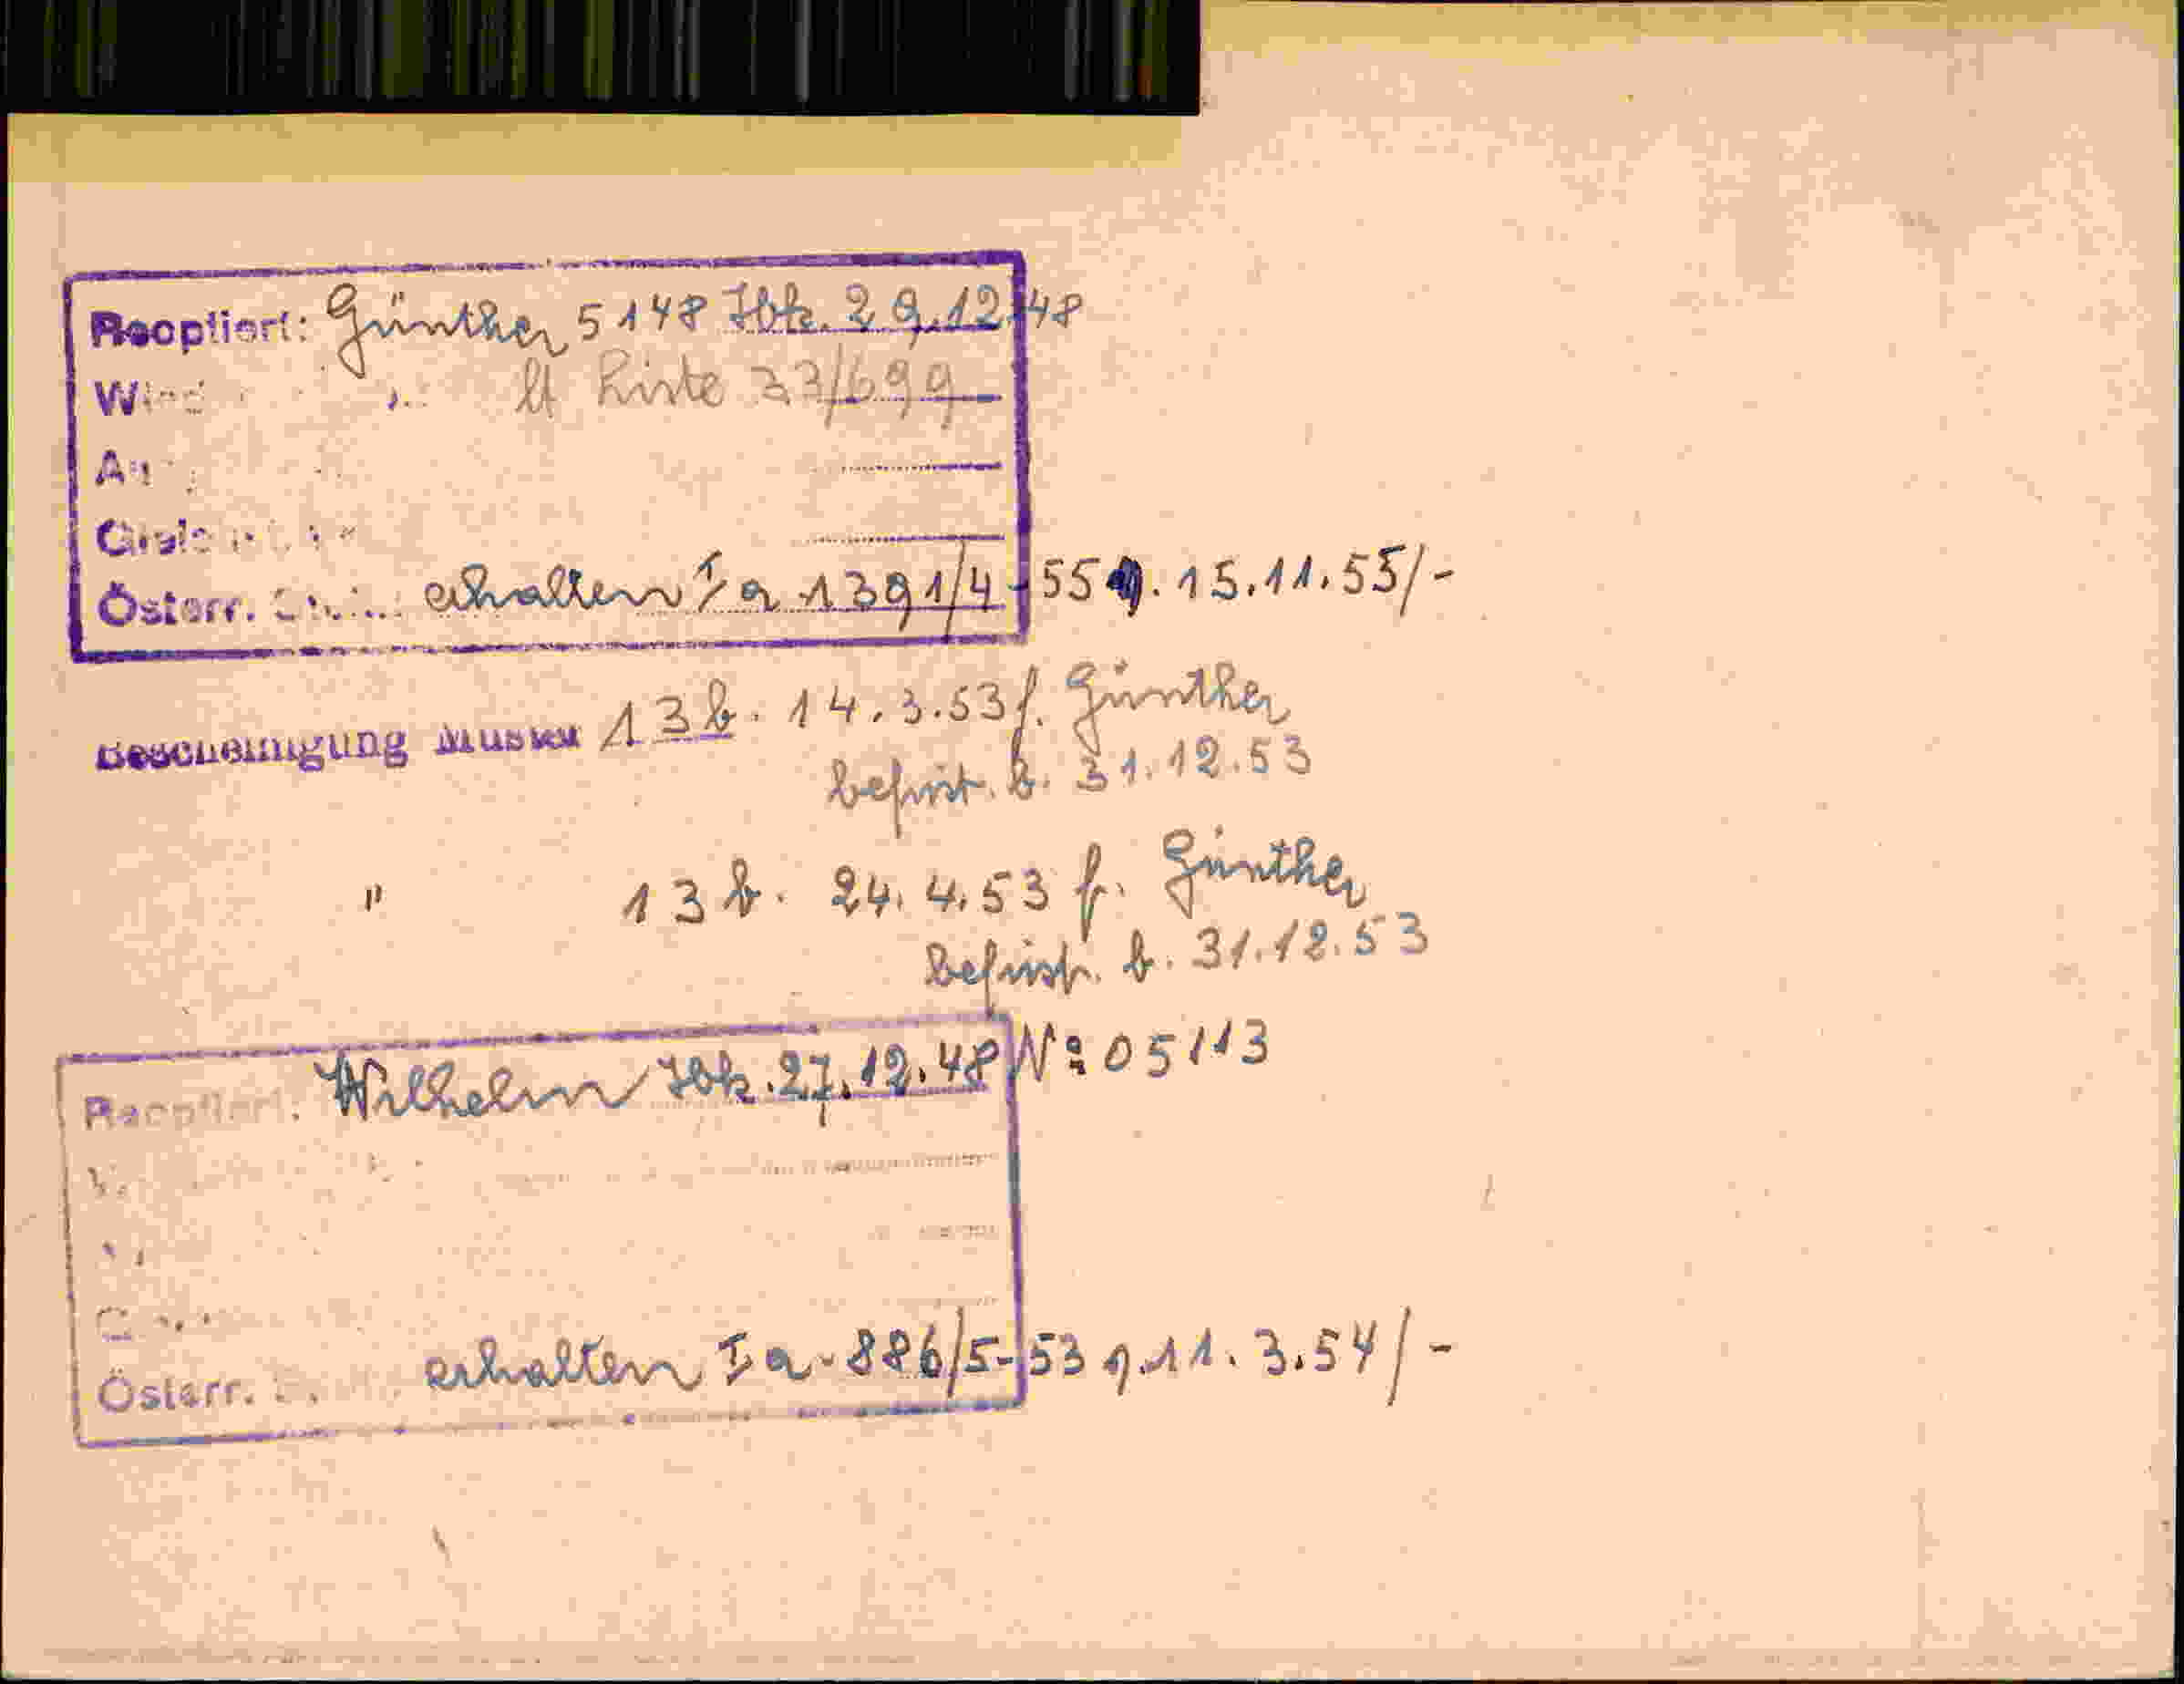 Reoptiert: Günther 5148 Ibk. 29.12.48
lt Liste 33/699
Österr. erhalten Ia-1391/4-55 v. 15.11.55/-
Bescheinigung Muster 13b. 14.3.53 f. Günther
befrist. b. 31.12.53
" 13b. 24.4.53 f. Günther
befrist. b. 31.12.53
Reoptiert: Wilhelm Ibk. 27.12.48 No 05113
Österr. erhalten Ia-886/5-53 v. 11.3.54/-